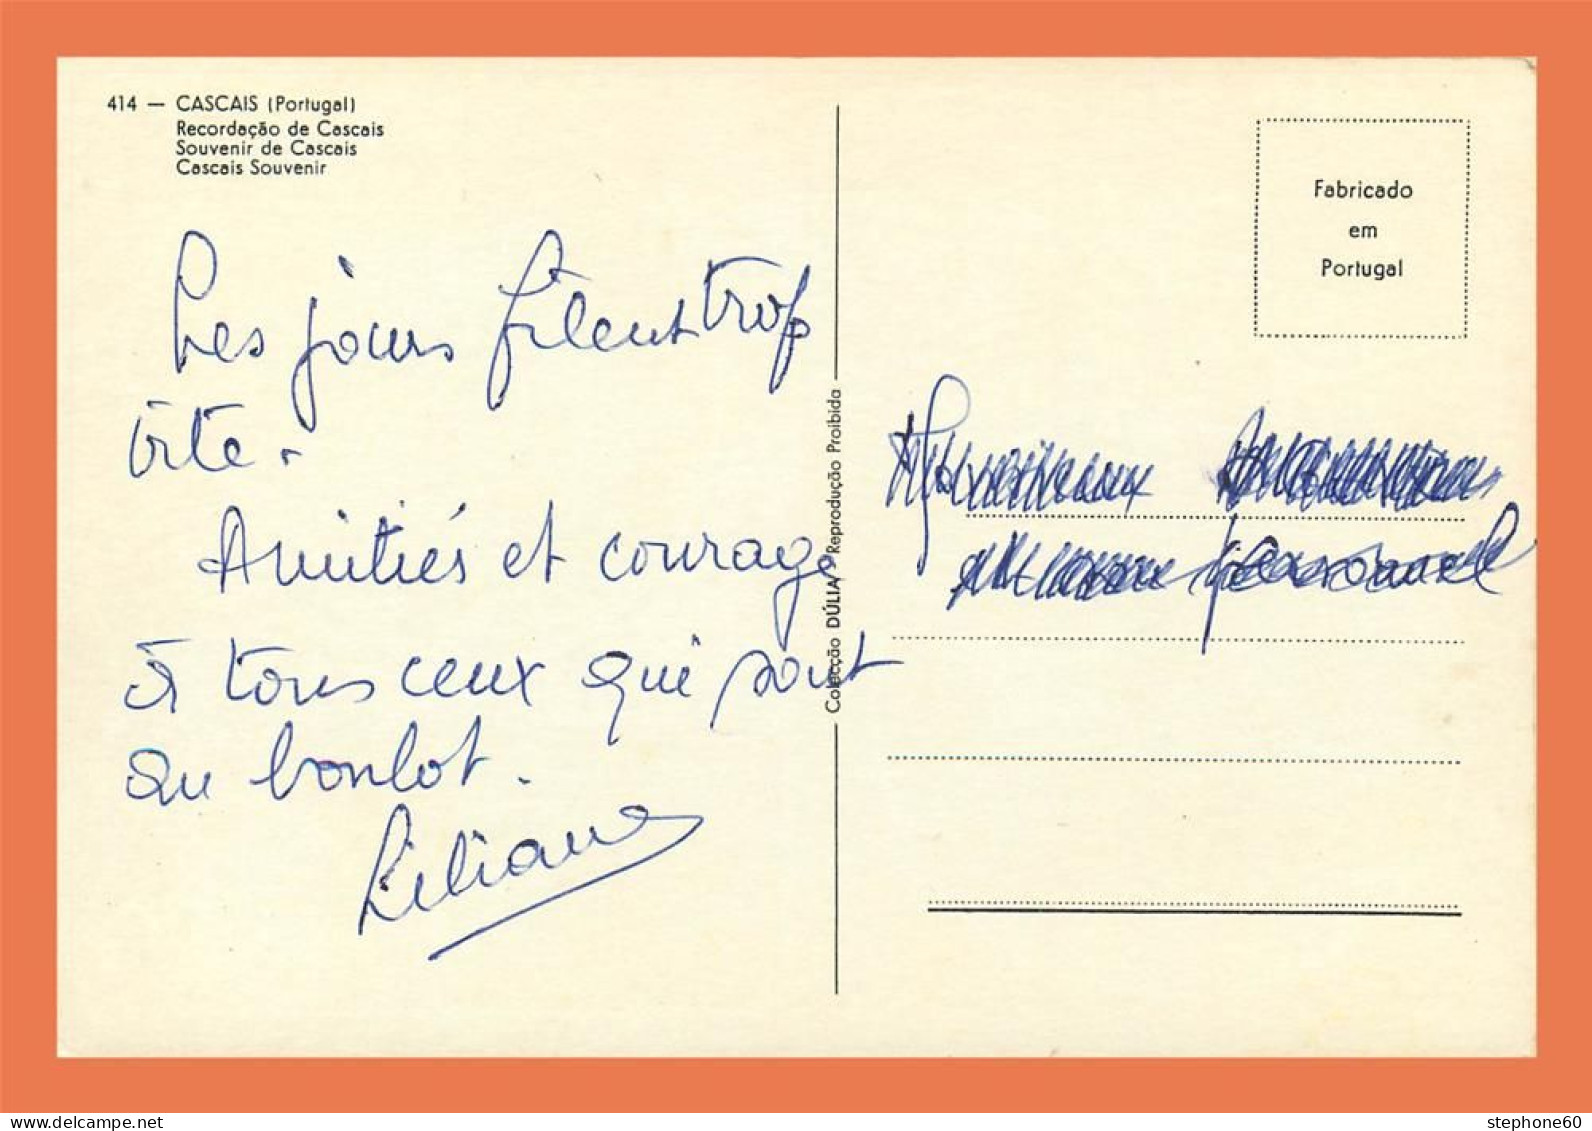 414 — CASCAIS (Portugal)
Recordação de Cascais
Souvenir de Cascais
Cascais Souvenir
Les jours filent trop
vite.
Amitiés et courage
à tous ceux qui sont
au boulot.
Liliane
Colecção DÚLIA Reprodução Proibida
Fabricado
em
Portugal
personnel
stephone60